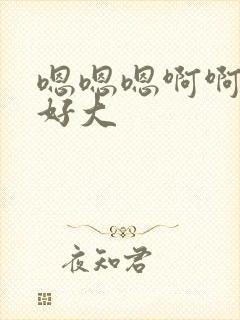 嗯嗯嗯啊啊
好大
夜知君